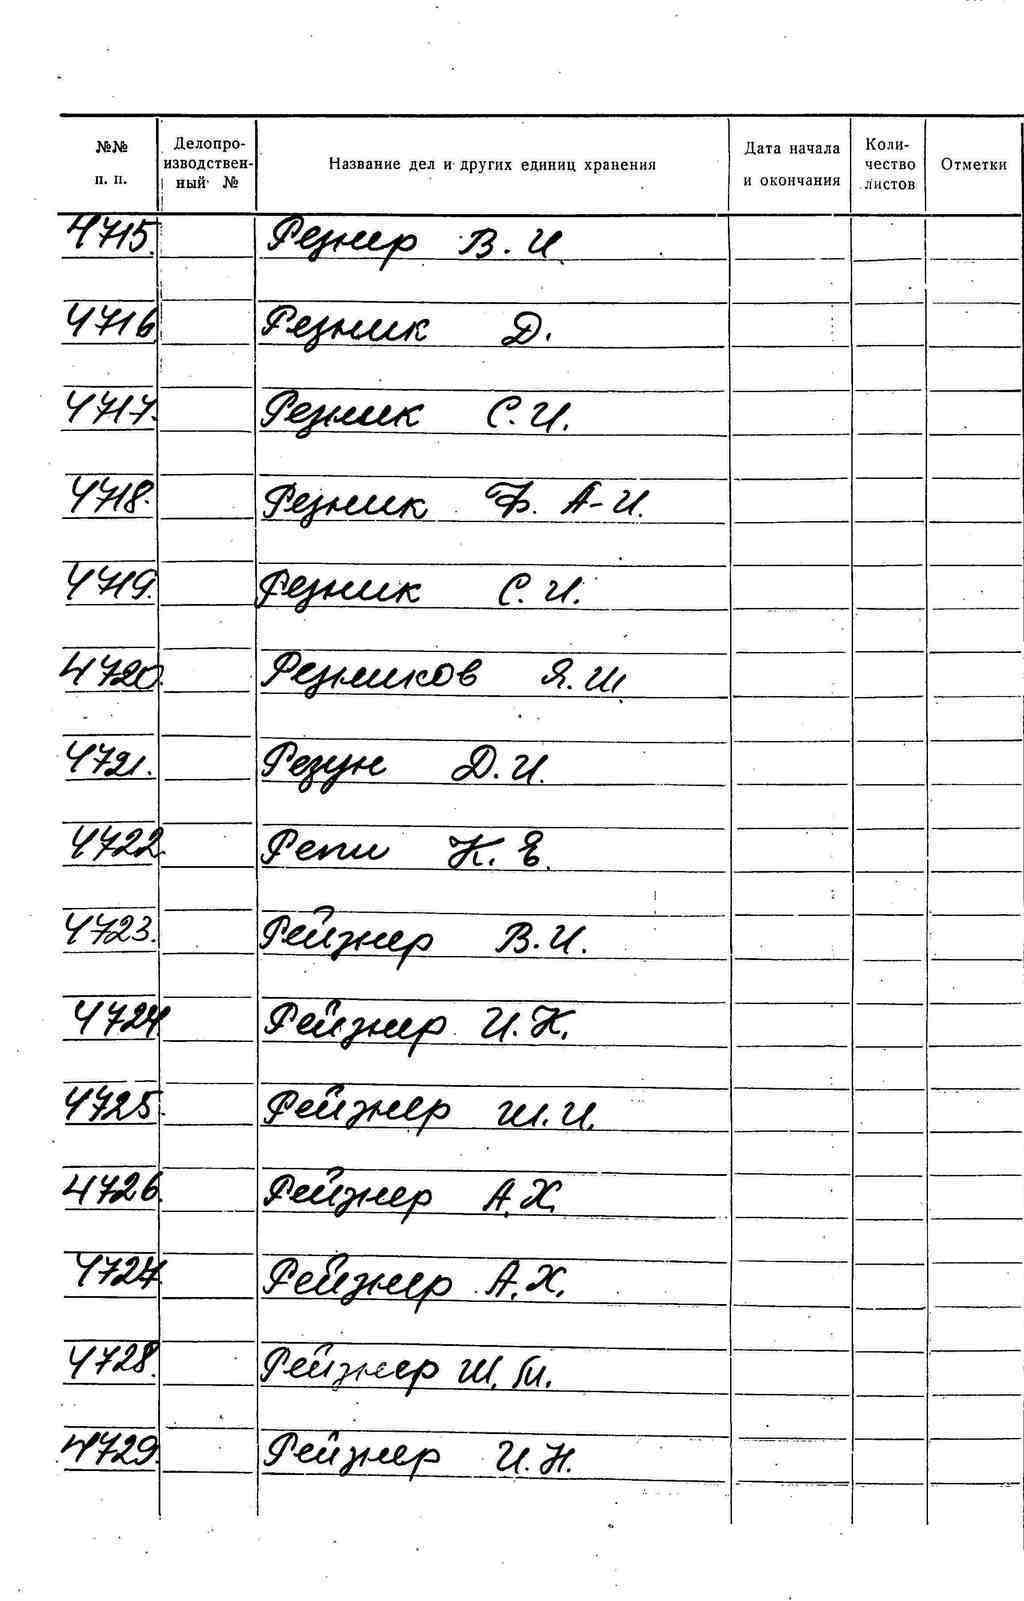 №№ п. п. Делопро-изводствен-ный № Название дел и других единиц хранения Дата начала и окончания Коли-чество листов Отметки
4715. Резнер В. И.
4716. Резник Д.
4717. Резник С. И.
4718. Резник Ф. А-И.
4719. Резник С. И.
4720. Резников Я. Ш.
4721. Резун Д. И.
4722. К. Е.
4723. Рейзнер В. И.
4724. Рейзнер И. К.
4725. Рейзнер Ш. И.
4726. Рейзнер А. Х.
4727. Рейзнер А. Х.
4728. Рейзнер Ш. М.
4729. Рейзнер И. Н.